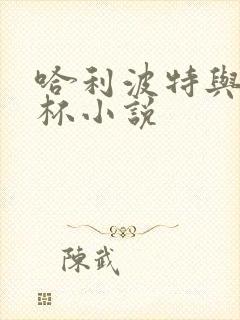 哈利波特與
杯小說
陳武